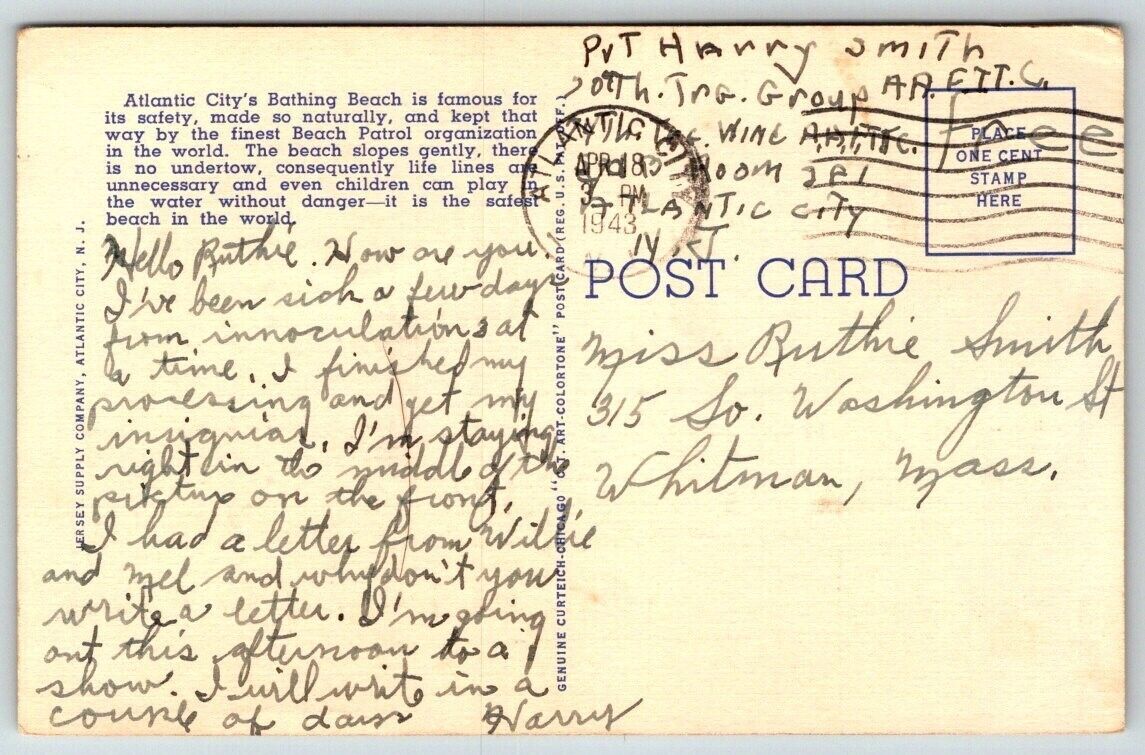 Pvt Harry Smith
30th. Trg. Group AA.F.T.T.C.
WING
Room 281
ATLANTIC CITY
N.J.
Free
PLACE
ONE CENT
STAMP
HERE
ATLANTIC CITY
APR 18
3 PM
1943
Atlantic City's Bathing Beach is famous for
its safety, made so naturally, and kept that
way by the finest Beach Patrol organization
in the world. The beach slopes gently, there
is no undertow, consequently life lines are
unnecessary and even children can play in
the water without danger—it is the safest
beach in the world.
POST CARD
Hello Ruthie. How are you.
I've been sick a few days
from innoculations 3 at
a time. I finished my
processing and get my
insignias. I'm staying
right in the middle of the
picture on the front.
I had a letter from Willie
and Mel and why don't you
write a letter. I'm going
out this afternoon to a
show. I will write in a
couple of days Harry
Miss Ruthie Smith
315 So. Washington St
Whitman, Mass.
JERSEY SUPPLY COMPANY, ATLANTIC CITY, N. J.
GENUINE CURTEICH-CHICAGO "C.T. ART-COLORTONE" POST CARD (REG. U.S. PAT. OFF.)